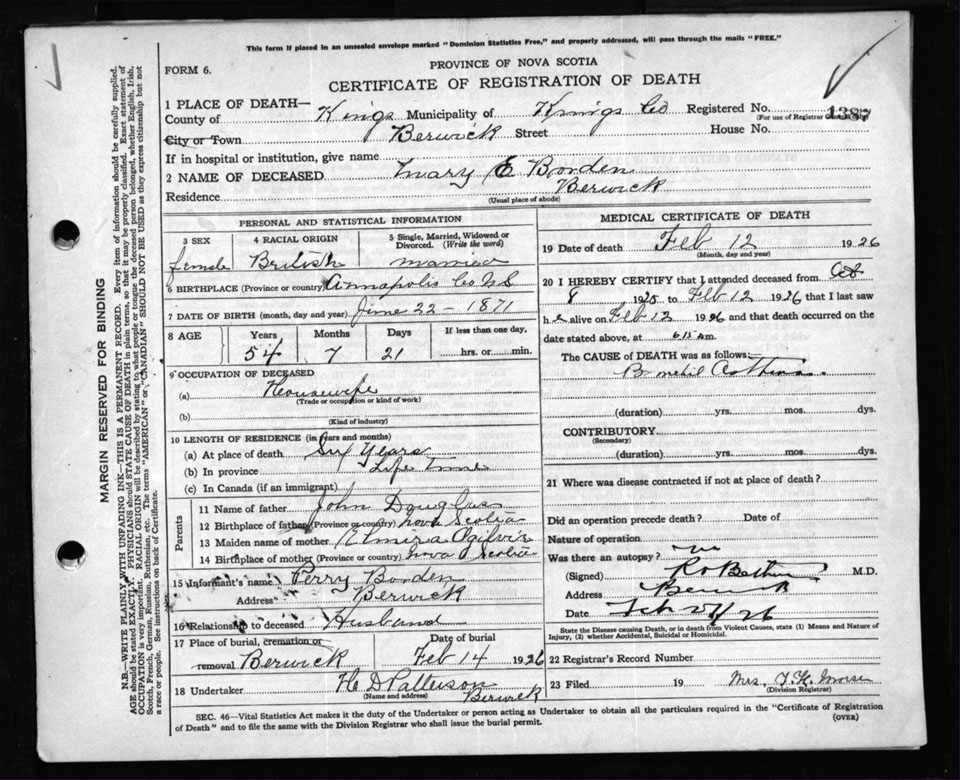 This form if placed in an unsealed envelope marked "Dominion Statistics Free," and properly addressed, will pass through the mails "FREE."
PROVINCE OF NOVA SCOTIA
FORM 6.
CERTIFICATE OF REGISTRATION OF DEATH
1 PLACE OF DEATH—
County of Kings Municipality of Kings Co Registered No. 1387
(For use of Registrar General only)
City or Town Berwick Street House No.
If in hospital or institution, give name
2 NAME OF DECEASED Mary E Borden
Residence Berwick
(Usual place of abode)
PERSONAL AND STATISTICAL INFORMATION
3 SEX 4 RACIAL ORIGIN 5 Single, Married, Widowed or Divorced. (Write the word)
female British married
6 BIRTHPLACE (Province or country) Annapolis Co N S
7 DATE OF BIRTH (month, day and year) June 22 - 1871
8 AGE Years Months Days If less than one day,
54 7 21 hrs. or min.
9 OCCUPATION OF DECEASED
(a) Housewife
(Trade or occupation or kind of work)
(b)
(Kind of industry)
10 LENGTH OF RESIDENCE (in years and months)
(a) At place of death Years
(b) In province Life time
(c) In Canada (if an immigrant)
Parents
11 Name of father John Douglas
12 Birthplace of father (Province or country) Nova Scotia
13 Maiden name of mother Elmira Ogilvie
14 Birthplace of mother (Province or country) Nova Scotia
15 Informant's name Perry Borden
Address Berwick
16 Relationship to deceased Husband
17 Place of burial, cremation or removal Berwick
Date of burial Feb 14 1926
18 Undertaker H D Patterson Berwick
(Name and address)
MEDICAL CERTIFICATE OF DEATH
19 Date of death Feb 12 1926
(Month, day and year)
20 I HEREBY CERTIFY that I attended deceased from Oct
8 1925 to Feb 12 1926 that I last saw
h alive on Feb 12 1926 and that death occurred on the
date stated above, at 6.15 am.
The CAUSE of DEATH was as follows:
Asthma
(duration) yrs. mos. dys.
CONTRIBUTORY
(Secondary)
(duration) yrs. mos. dys.
21 Where was disease contracted if not at place of death?
Did an operation precede death? Date of
Nature of operation
Was there an autopsy? no
(Signed) M.D.
Address Berwick
Date Feb 26
State the Disease causing Death, or in death from Violent Causes, state (1) Means and Nature of Injury, (2) whether Accidental, Suicidal or Homicidal.
22 Registrar's Record Number
23 Filed 19 Mrs. Morse
(Division Registrar)
SEC. 46—Vital Statistics Act makes it the duty of the Undertaker or person acting as Undertaker to obtain all the particulars required in the "Certificate of Registration
of Death" and to file the same with the Division Registrar who shall issue the burial permit.
(OVER)
MARGIN RESERVED FOR BINDING
N.B.—WRITE PLAINLY WITH UNFADING INK—THIS IS A PERMANENT RECORD. Every item of information should be carefully supplied.
AGE should be stated EXACTLY. PHYSICIANS should STATE CAUSE OF DEATH in plain terms, so that it may be properly classified. Exact statement of
OCCUPATION is very important. RACIAL ORIGIN will be described by stating to what people or tongue the deceased person belonged, whether English, Irish,
Scotch, French, German, Russian, Ruthenian, etc. The terms "AMERICAN" or "CANADIAN" SHOULD NOT BE USED as they express citizenship but not
a race or people. See instructions on back of Certificate.